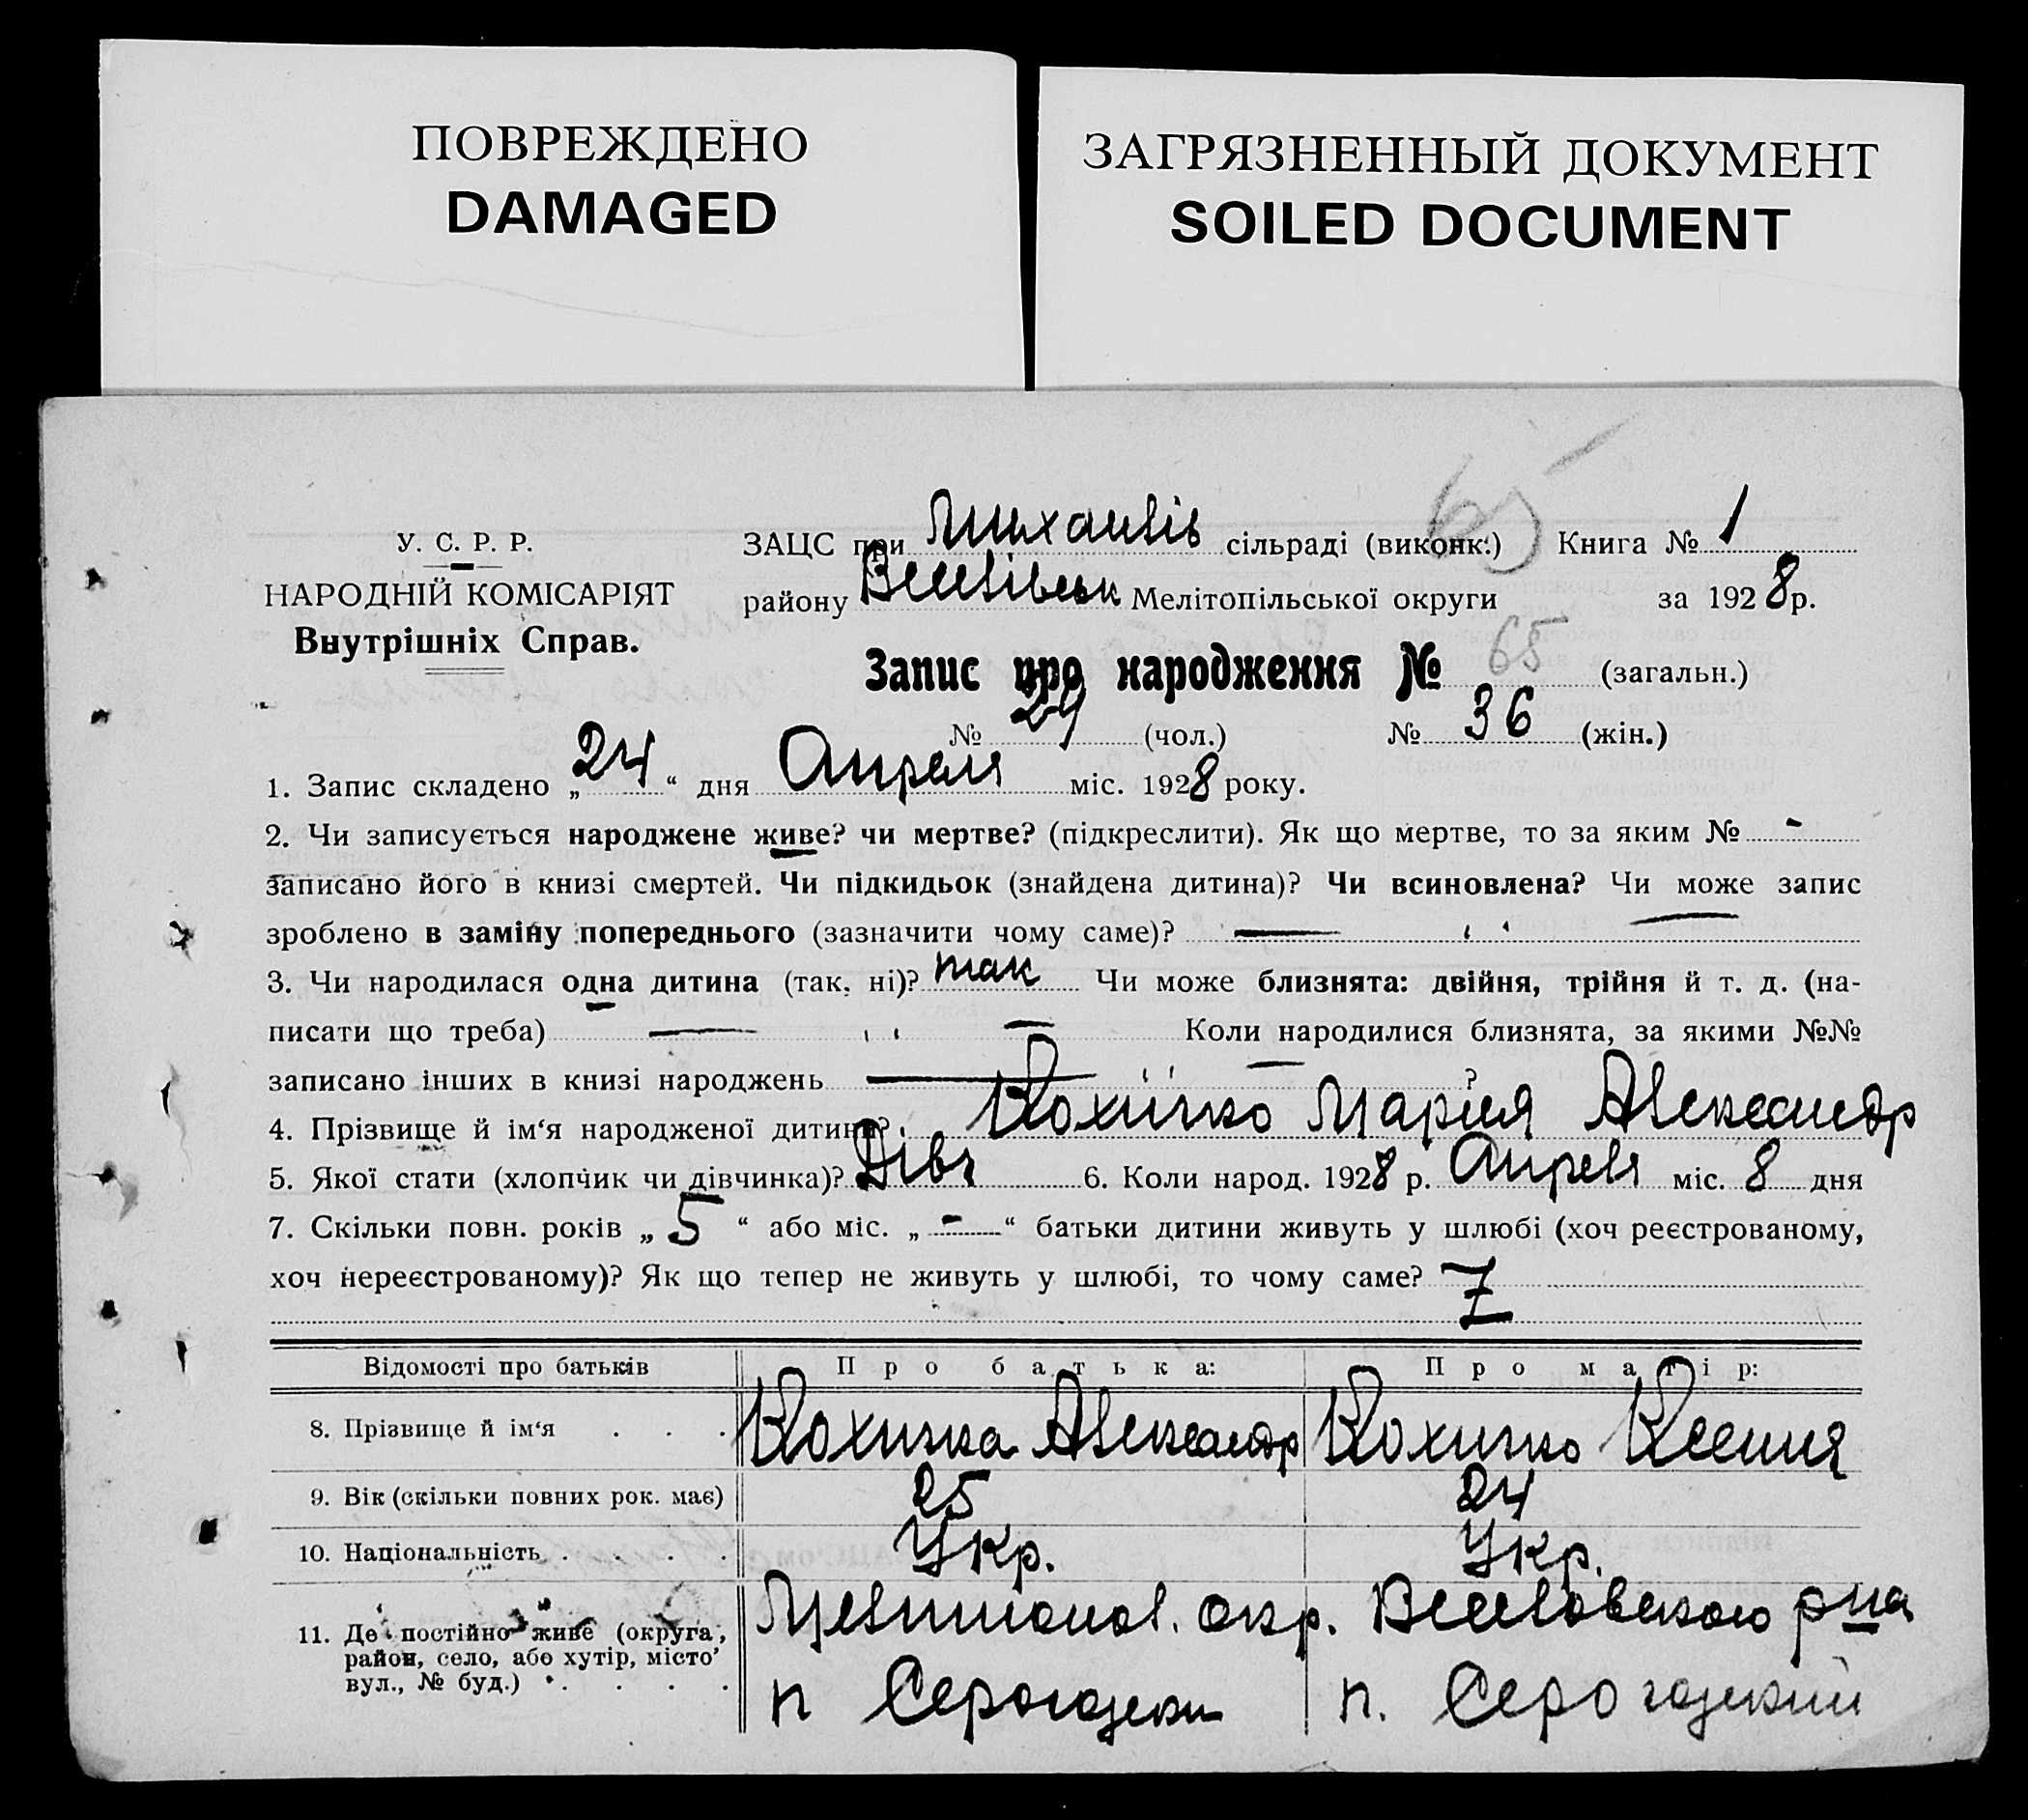 ПОВРЕЖДЕНО
DAMAGED
ЗАГРЯЗНЕННЫЙ ДОКУМЕНТ
SOILED DOCUMENT
65
У. С. Р. Р.
НАРОДНІЙ КОМІСАРІЯТ
Внутрішніх Справ.
ЗАЦС при Михайлів сільраді (виконк.) Книга № 1
району Веселівськ Мелітопільської округи за 1928 р.
Запис про народження № 65 (загальн.)
№ 29 (чол.) № 36 (жін.)
1. Запис складено „24“ дня Апреля міс. 1928 року.
2. Чи записується народжене живе? чи мертве? (підкреслити). Як що мертве, то за яким № -
записано його в книзі смертей. Чи підкидьок (знайдена дитина)? Чи всиновлена? Чи може запис
зроблено в заміну попереднього (зазначити чому саме)? —
3. Чи народилася одна дитина (так, ні)? так Чи може близнята: двійня, трійня й т. д. (на-
писати що треба) — Коли народилися близнята, за якими №№
записано інших в книзі народжень — ?
4. Прізвище й ім‘я народженої дитини? Кохичко Мария Александр
5. Якої стати (хлопчик чи дівчинка)? Дівч 6. Коли народ. 1928 р. Апреля міс. 8 дня
7. Скільки повн. років „5“ або міс. „-“ батьки дитини живуть у шлюбі (хоч реєстрованому,
хоч нереєстрованому)? Як що тепер не живуть у шлюбі, то чому саме?
Відомості про батьків Про батька: Про матір:
8. Прізвище й ім‘я . . . Кохичка Александр Кохичко Ксения
9. Вік (скільки повних рок. має) 25 24
10. Національність . . . . Укр. Укр.
11. Де постійно живе (округа, район, село, або хутір, місто вул., № буд.) . . . . Мелитопол. окр. Веселовского р-на
п Серогозски п. Серогозский